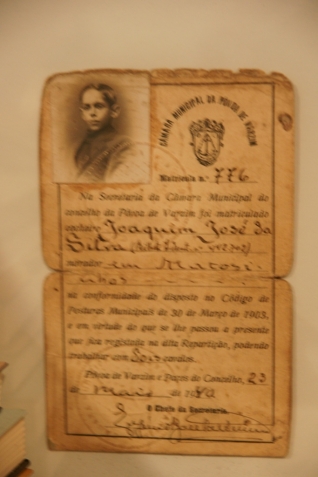 CÂMARA MUNICIPAL DA PÓVOA DE VARZIM
Matricula n.º 776
Na Secretaria da Câmara Municipal do
concelho da Póvoa de Varzim foi matriculado
cocheiro Joaquim José da
Silva
morador em Matosi-
nhos
na conformidade do disposto no Código de
Posturas Municipais de 30 de Março de 1903,
e em virtude do que se lhe passou a presente
que fica registada na dita Repartição, podendo
trabalhar com dois cavalos.
Póvoa de Varzim e Paços do Concelho, 23
de Março de
O Chefe da Secretaria,